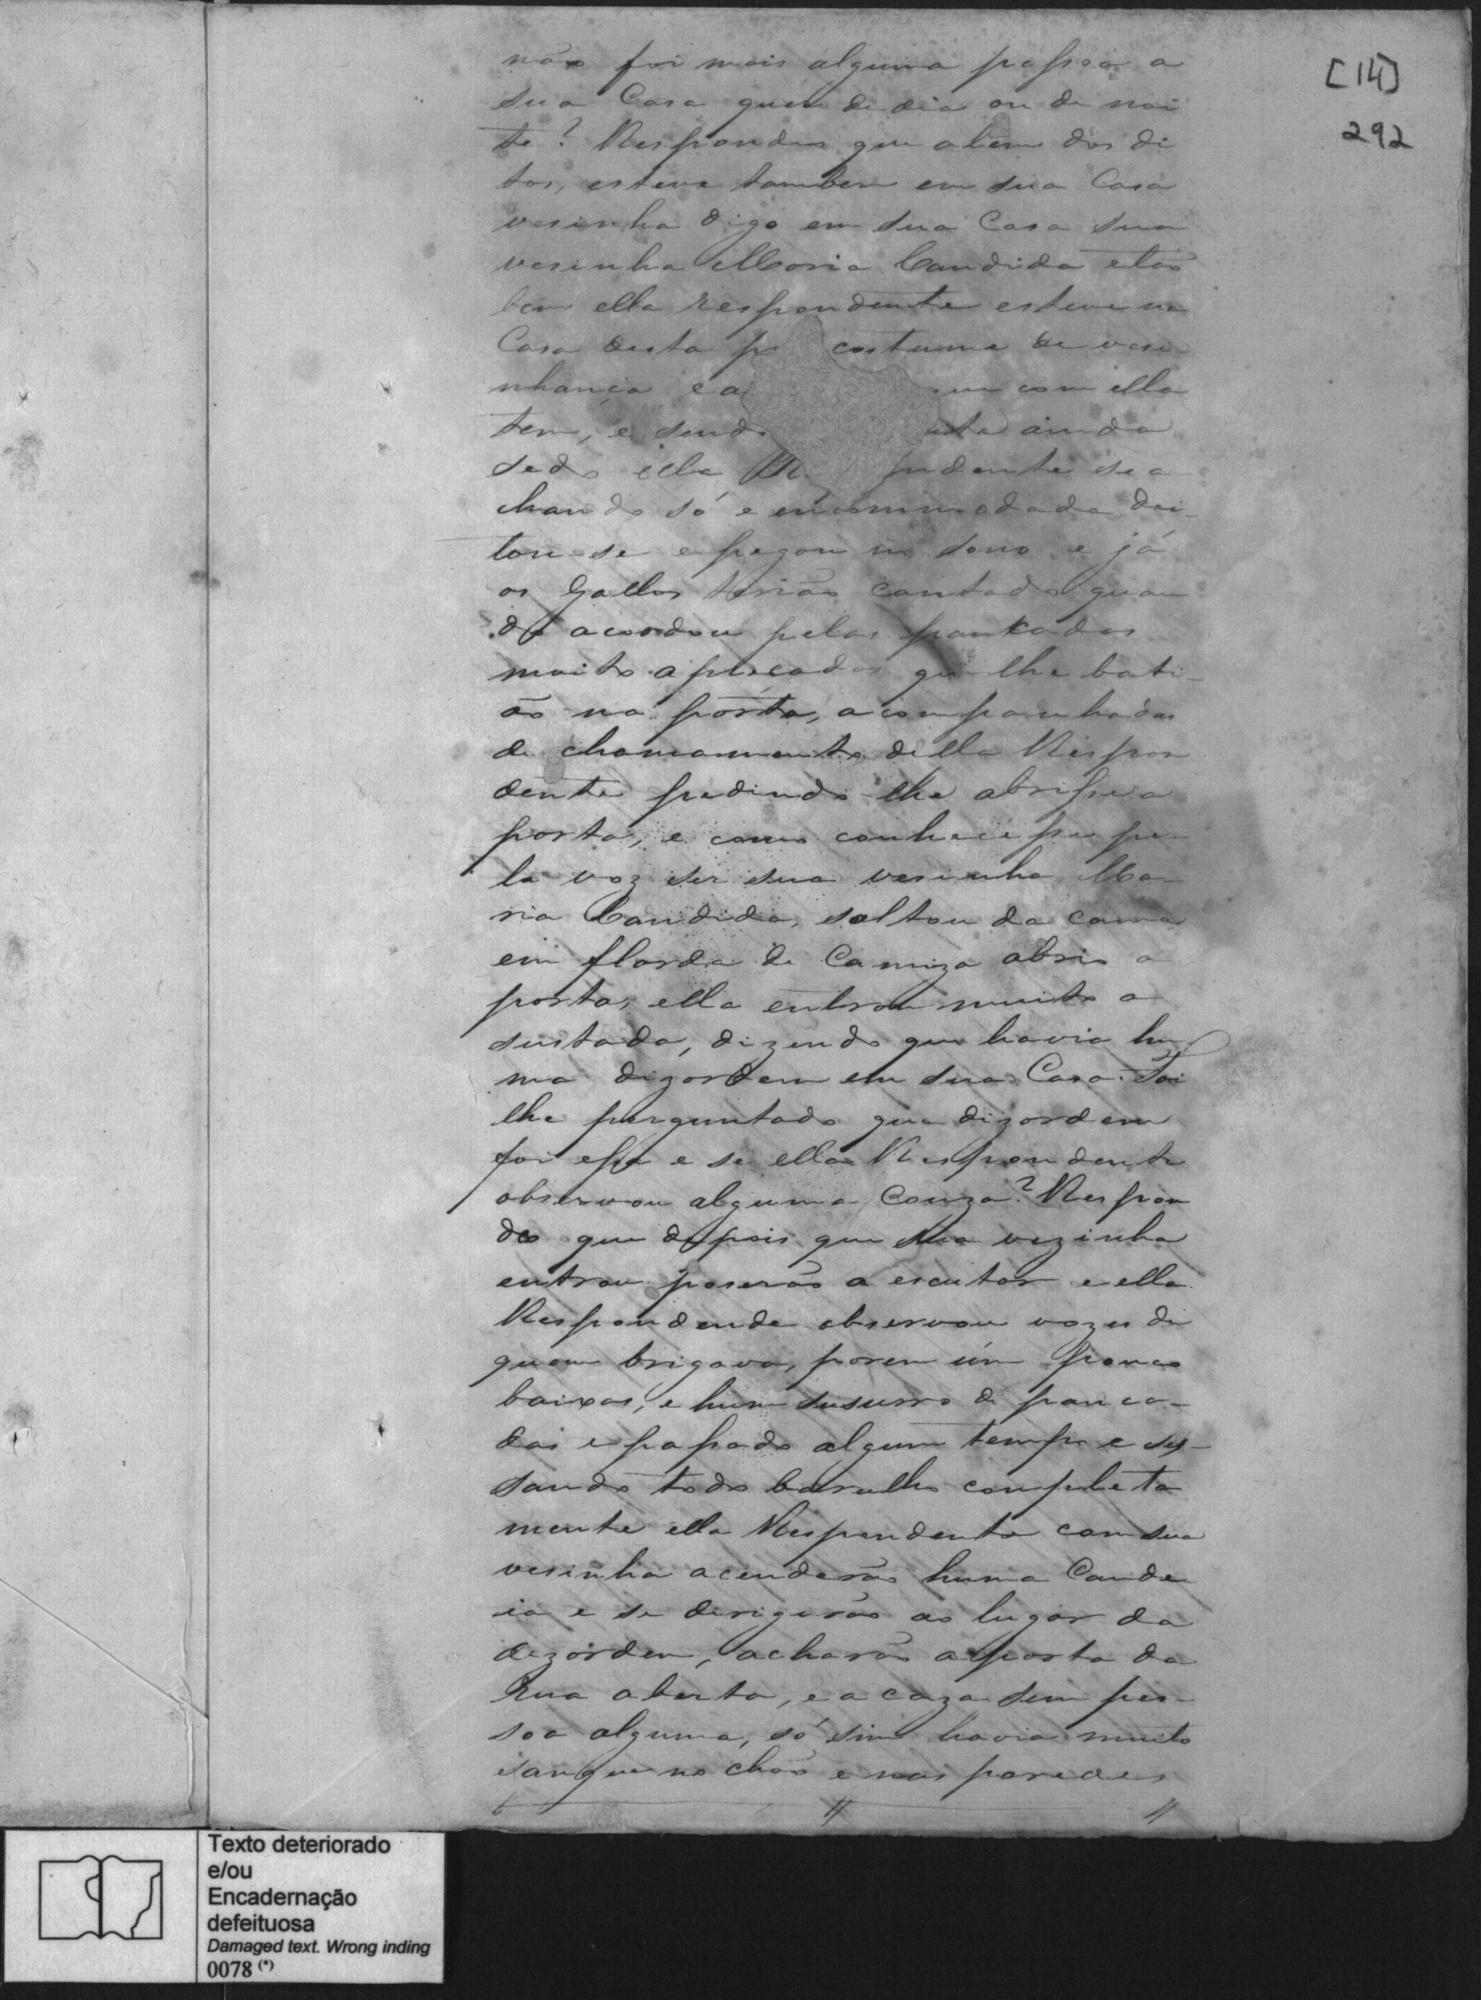 [14]
292
não foi mais alguma passoa a
sua Casa quer de dia ou de noi
te? Respondeo que alem dos di
tos, esteve tambem em sua Casa
vesinha digo em sua Casa sua
vesinha Maria Candida e tão
bem ella respondente esteve na
Casa desta p costume de vesi-
nhança e a que com ella
tem, e send esta ainda
sedo ella Re ndente se a
chando só e encommodada dei-
tou-se e pegou no sono e já
os Gallos terião cantado quan
do acordou pelas pankadas
muito apreçadas que lhe bati-
ão na porta, acompanhadas
de chamamento della Respon
dente pedindo-lhe abrisse a
porta, e como conhecesse pe
la voz ser sua vesinha Ma-
ria Candida, saltou da cama
em flarda de Camiza abrio a
porta, ella entrou muito a
sustada, dizendo que havia hu
ma dizordem em sua Casa. Foi
lhe perguntado que dizordem
foi essa e se ella Respondente
observou alguma Couza? Respon
deo que depois que sua vezinha
entrou poserão a escutar e ella
Respondende observou vozes de
quem brigava, porem úm pouco
baixas, e hum susurro de panca-
das e passado algum tempo e ses-
sando todo barulho completa
mente ella Respondente com sua
vesinha acenderão huma Cande
ia e se derigirão ao lugar da
dezordem, acharão a porta da
Rua aberta, e a caza sem pes-
soa alguma, só sim havia muito
sangue no chão e nas paredes
Texto deteriorado
e/ou
Encadernação
defeituosa
Damaged text. Wrong inding
0078 (*)